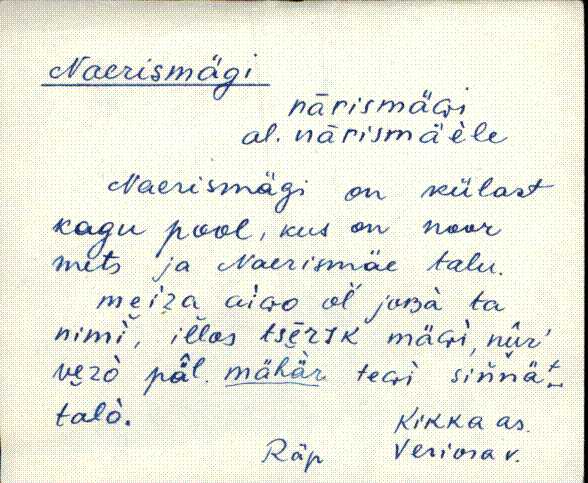 Naerismägi
nārismäɢi
al. nārismäèle
Naerismägi on külast
kagu pool, kus on noor
mets ja Naerismäe talu.
meiza aiɢo ol' joʙà ta
nimi, illos tsērɪk mäɢi, nûr'
vezò päl. mähàr teɢi sinnä
talò.
Kikka as.
Räp Veriora v.